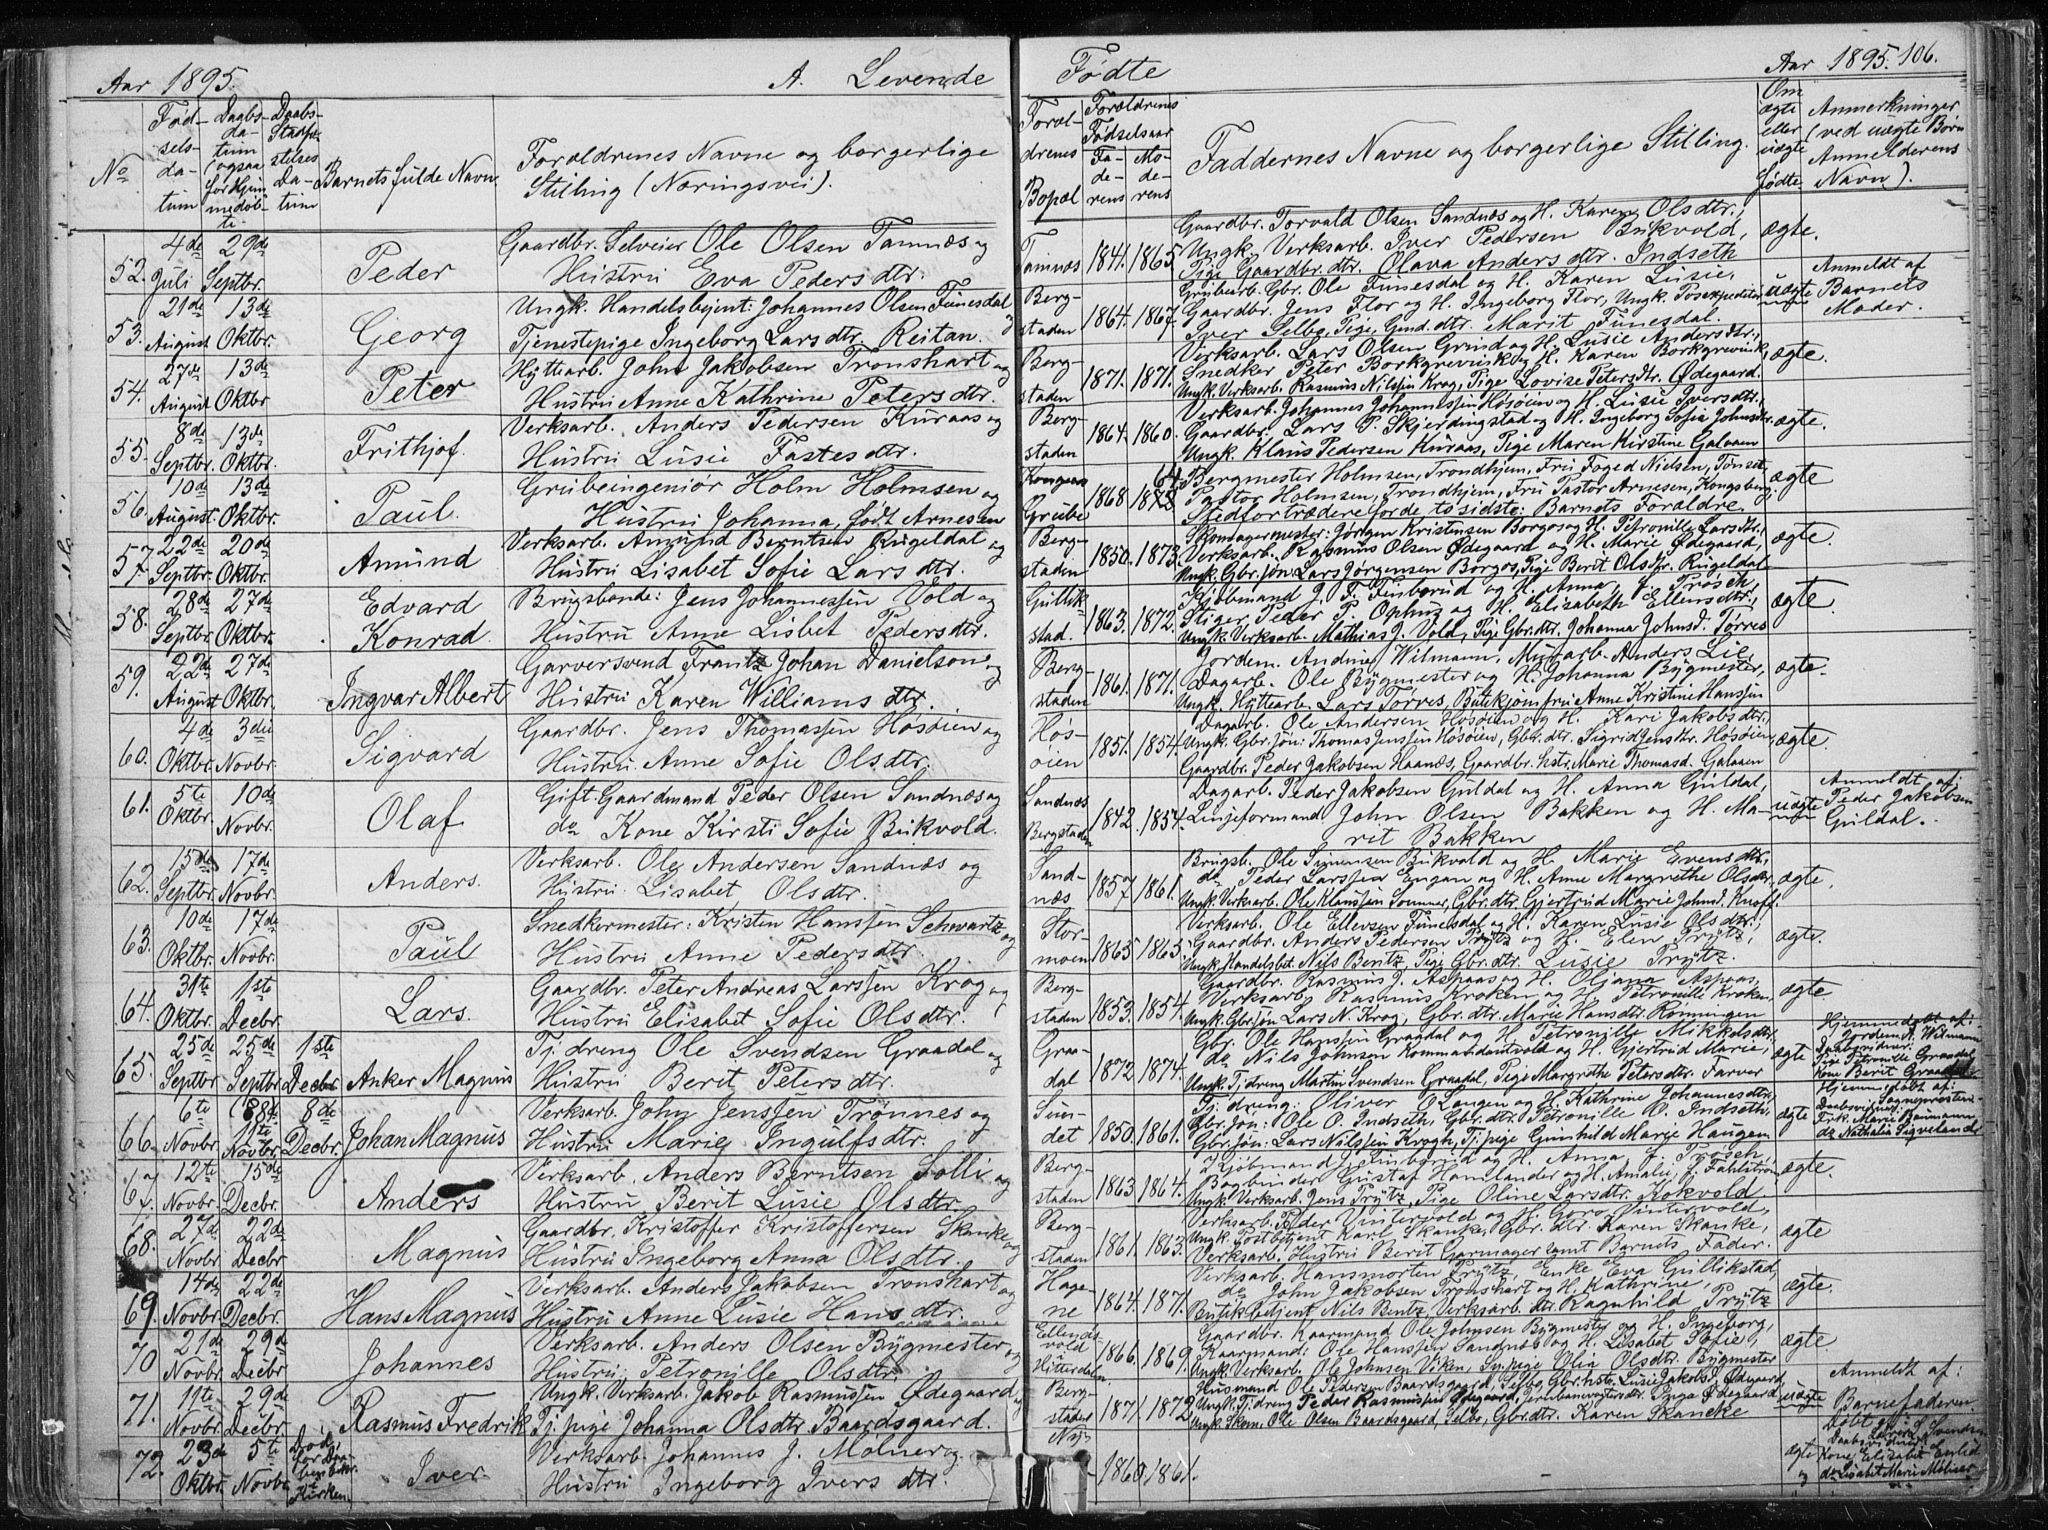 Aar 1895.
A. Levende
No
Fød-
sels-
da-
tum
Daabs-
da-
tum
(ogsaa
for hjem
medøb-
te
Daabs-
Stadfæ-
stelses
Da-
tum
Barnets fulde Navn
Forældrenes Navne og borgerlige
Stilling (Næringsvei).
52. 4de Juli 29de Septbr. Peder
Gaardbr. Selveier Ole Olsen Tamnæs og
Hustru Eva Pedersdtr.
53. 21de August 13de Oktbr. Georg
Ungk. Handelsbetjent: Johannes Olsen Funesdal og
Tjenestepige Ingeborg Larsdtr. Reitan.
54. 27de August 13de Oktbr Peter
Hyttearb. John Jakobsen Tronshart og
Hustru Anne Kathrine Petersdtr.
55. 8de Septbr. 13de Oktbr. Frithjof.
Verksarb. Anders Pedersen Kuraas og
Hustru Lusie Fastesdtr.
56. 10de August. 13de Oktbr. Paul.
Grubeingeniør Holm Holmsen og
Hustru Johanna, født Arnesen
57. 22de Septbr. 20de Oktbr. Amund
Verksarb. Amund Berntsen Rugeldal og
Hustru Lisabet Sofie Larsdtr.
58. 28de Septbr. 27de Oktbr. Edvard
Konrad.
Brugsbonde: Jens Johannessen Vold og
Hustru Anne Lisbet Pedersdtr.
59. 22de August 27de Oktbr. Ingvar Albert
Garversvend Frantz Johan Danielson og
Hustru Karen Williamsdtr.
60. 4de Oktbr. 3die Novbr. Sigvard
Gaardbr. Jens Thomassen Høsøien og
Hustru Anne Sofie Olsdtr.
61. 5te Oktbr. 10de Novbr. Olaf
Gift Gaardmand Peder Olsen Sandnæs og
do Kone Kirsti Sofie Bukvold.
62. 15de Septbr. 17de Novbr. Anders.
Verksarb. Ole Andersen Sandnæs og
Hustru Lisabet Olsdtr.
63. 10de Oktbr. 17de Novbr. Paul
Snedkermester: Kristen Hanssen Schwartz og
Hustru Anne Pedersdtr.
64. 31te Oktbr. 1ste Decbr. Lars.
Gaardbr. Peter Andreas Larssen Krog og
Hustru Elisabet Sofie Olsdtr.
65. 25de Septbr 25de Septbr 1ste Decbr. Anker Magnus
Tj. dreng Ole Svendsen Graadal og
Hustru Berit Petersdtr.
66. 6te Novbr. 11te Novbr. 8de Decbr. Johan Magnus
Verksarb. John Jenssen Trønnes og
Hustru Marie Ingulfsdtr.
67. 12te Novbr. 15de Decbr. Anders
Verksarb. Anders Berntsen Solli og
Hustru Berit Lusie Olsdtr.
68. 27de Novbr. 22de Decbr Magnus
Gaardbr. Kristoffer Kristoffersen Skanke og
Hustru Ingeborg Anna Olsdtr.
69. 14de Novbr. 22de Decbr. Hans Magnus
Verksarb. Anders Jakobsen Tronshart og
Hustru Anne Lusie Hansdtr.
70 21de Novbr. 29de Decbr Johannes
Verksarb. Anders Olsen Bygmester og
Hustru Petronille Olsdtr.
71. 11te Novbr. 29de Decbr. Rasmus Fredrik
Ungk. Verksarb. Jakob Rasmussen Ødegaard og
Tj. pige Johanna Olsdtr Baardsgaard.
72. 23de Oktbr. 5te Novbr Iver.
Verksarb. Johannes J. Molner og
Hustru Ingeborg Iversdtr.
Fødte
Aar 1895. 106.
Foræl-
drenes
Bopæl
Forældrenes
Fødselsaar
Fa-
de-
rens
Mo-
de-
rens
Faddernes Navne og borgerlige Stilling.
Om
ægte
eller
uægte
fødte
Anmerkninger
(ved uægte Børn
Anmelderens
Navn).
Tamnæs 1841. 1865.
Gaardbr. Torvald Olsen Sandnæs og H. Karen Olsdtr.,
Ungk. Verksarb. Iver Pedersen Bukvold,
Pige Gaardbr.dtr. Olava Andersdtr. Indseth
ægte.
Berg-
staden 1864. 1867.
Grubearb. Gbr. Ole Funesdal og H. Karen Lusie,
Gaardbr. Jens Flor og H. Ingeborg Flor, Ungk. Postexpeditør
Iver Selbo, Pige, Gmd.dtr. Marit Funesdal.
uægte
Anmeldt af
Barnets
Moder.
Berg-
staden 1871. 1871.
Verksarb. Lars Olsen Grind og H. Lusie Andersdtr.,
Snedker Peter Borkgrevink og H. Karen Borkgrevink,
Ungk. Verksarb. Rasmus Nilssen Krog, Pige Lovise Petersdtr. Ødegaard.
ægte.
Berg-
staden 1864. 1860.
Verksarb. Johannes Johannessen Høsøien og H. Lusie Iversdtr.,
Gaardbr. Lars P. Skjerdingstad og H. Ingeborg Sofia Johnsdtr.
Ungk. Klaus Pedersen Kuraas, Pige Maren Kirstine Galaaen
ægte.
Kongens
Grube 1868
Bergmester Holmsen, Trondhjem, Fru Foged Nielsen, Tønset,
Pastor Holmsen, Trondhjem, Fru Pastor Arnesen, Kongsberg.
Stedfortrædere for de to sidste: Barnets Forældre.
ægte
Berg-
staden 1850. 1873.
Skomagermester: Jørgen Kristensen Borgos og H. Petronille Larsdtr.,
Verksarb. Rasmus Olsen Ødegaard og H. Marie Ødegaard,
Ungk. Gbr.søn: Lars Jørgensen Borgos, Pige Berit Olsdtr. Rugeldal
ægte.
Gullik-
stad. 1863. 1872.
Kjøbmand J. F. Finborud og H. Anna, f. Trøsch,
Stiger Peder P. Ophus og H. Elisabeth Ellensdtr.,
Ungk. Verksarb. Mathias J. Vold, Pige Gbr.dtr. Johanna Johnsd. Torres
ægte.
Berg-
staden 1861. 1871.
Jordem. Andine Wilmann, Murarb. Anders Lie,
Dagarb. Ole Bygmester og H. Johanna Bygmester,
Ungk. Hyttearb. Lars Torres, Butikjomfru Anne Kristine Hanssen
ægte.
Høs-
øien 1851. 1854.
Dagarb. Ole Andersen Høsøien og H. Kari Jakobsdtr.,
Ungk. Gbr.søn: Thomas Jenssen Høsøien, Gbr.dtr. Sigrid Jensdtr. Høsøien,
Gaardbr. Peder Jakobsen Haanæs, Gaardbr. hstr. Marie Thomasd. Galaaen
ægte.
Sandnæs
Bergstaden 1842. 1854.
Dagarb. Peder Jakobsen Guldal og H. Anna Guldal,
Linjeformand John Olsen Bakken og H. Ma-
rit Bakken
uægte
Anmeldt af:
Peder Jakobsen
Guldal.
Sand-
næs 1857. 1861.
Brugsb. Ole Simensen Bukvold og H. Marie Evensdtr.,
do Peder Larssen Engan og H. Anne Margrethe Olsdtr.,
Ungk. Verksarb. Ole Klaussen Sommer, Gbr.dtr. Gjertrud Marie Johnsd. Knoff.
ægte.
Stor-
moen 1865. 1865.
Verksarb. Ole Ellevsen Funesdal og H. Karen Lusie Olsdtr.,
Gaardbr. Anders Pedersen Prytz og H. Elen Prytz,
Ungk. Handelsbet. Nils Bentz, Pige Gbr.dtr. Lusie Prytz.
ægte.
Berg-
staden 1853. 1854.
Gaardbr. Rasmus J. Aspaas og H. Oljana Aspaas,
Verksarb. Rasmus Kroken og H. Petronille Kroken,
Ungk. Gbr.søn Lars N. Krog, Gbr.dtr. Marie Hansdtr. Rønningen
ægte
Graa-
dal 1872 1874.
Gbr. Ole Hanssen Graadal og H. Petronille Mikkelsdtr.,
do Nils Johnsen Kommandantvold og H. Gjertrud Marie,
Ungk. Tj. dreng Martin Svendsen Graadal, Pige Margrethe Petersdtr. Farver
ægte
Hjemmedøbt af:
Jordem. A. Wilmann
Daabsvidner:
Pige Petronille Graadal
Kone Berit Graadal
Sun-
det 1850. 1861.
Tj. dreng: Oliver O. Langen og H. Kathrine Johannesdtr.,
Gbr.søn: Ole O. Indseth, Gbr.dtr. Petronille O. Indseth,
Gbr.søn: Lars Nilssen Krogh, Tj. pige Gunhild Marie Haugen.
ægte
Hjemmedøbt af:
Daabsvidner:
Frk. Marie Baumann
do Nathalia Sigveland
Berg-
staden 1863 1864.
Kjøbmand J. Finborud og H. Anna, f. Trøsch,
Bogbinder Gustaf Hamlander og H. Amalie, f. Fahlstrøm,
Ungk. Verksarb. Jens Prytz, Pige Oline Larsdtr. Kokvold.
ægte.
Berg-
staden 1861. 1863.
Verksarb. Peder Vintervold og H. Goro Vintervold,
Ungk. Postbetjent Karl Skanke, Gbr.dtr. Karen Skanke,
Verksarb. Hustru Berit Garmager samt Barnets Fader.
ægte
Hage-
ne 1864. 1871.
Verksarb. Hansmorten Prytz, Enke Eva Gullikstad,
do John Jakobsen Tronshart og H. Kathrine,
Butikbetjent Nils Bentz, Verksarb.dtr. Ragnhild Prytz
ægte.
Ellends-
vold
Hitterdalen 1866. 1869.
Gaardbr. Kaarmand Ole Johnsen Bygmester og H. Ingeborg,
Kaarmand: Ole Hanssen Sandnæs og H. Lisabet Sofie,
Ungk. Verksarb. Ole Johnsen Viken, Tj. pige Elin Olsdtr. Bygmester
ægte
Berg-
staden 1871. 1872
Husmand Ole Pedersen Baardsgaard, Selbo, Gbr.hstr. Lusie Jakobsd. Ødegaard,
Ungk. Tj. dreng Peder Rasmussen Ødegaard, Pige Ødegaard
Ungk. Skom. Ole Olsen Baardsgaard, Selbo, Gbr.dtr. Karen Skancke
uægte
Anmeldt af:
Barnefaderen
1860. 1861.
ægte
Døbt af
Svendsen
Daabsvidner:
Kone Elisabet
do Lisabet Marie Molner